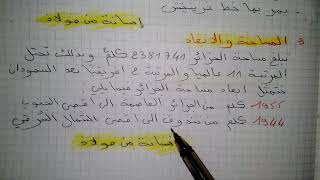 يمر بها خط غرينيتش.
أستاذة من مولاد
المساحة والأبعاد
تبلغ مساحة الجزائر 2381741 كلم² وبذلك تحتل
المرتبة 11 عالميا والمرتبة 2 افريقيا بعد السودان
تتمثل أبعاد مساحة الجزائر فيمايلي:
1955 كلم من الجزائر العاصمة إلى أقصى الجنوب
1944 كلم من تندوف إلى أقصى الشمال الشرقي
أستاذة من مولاد